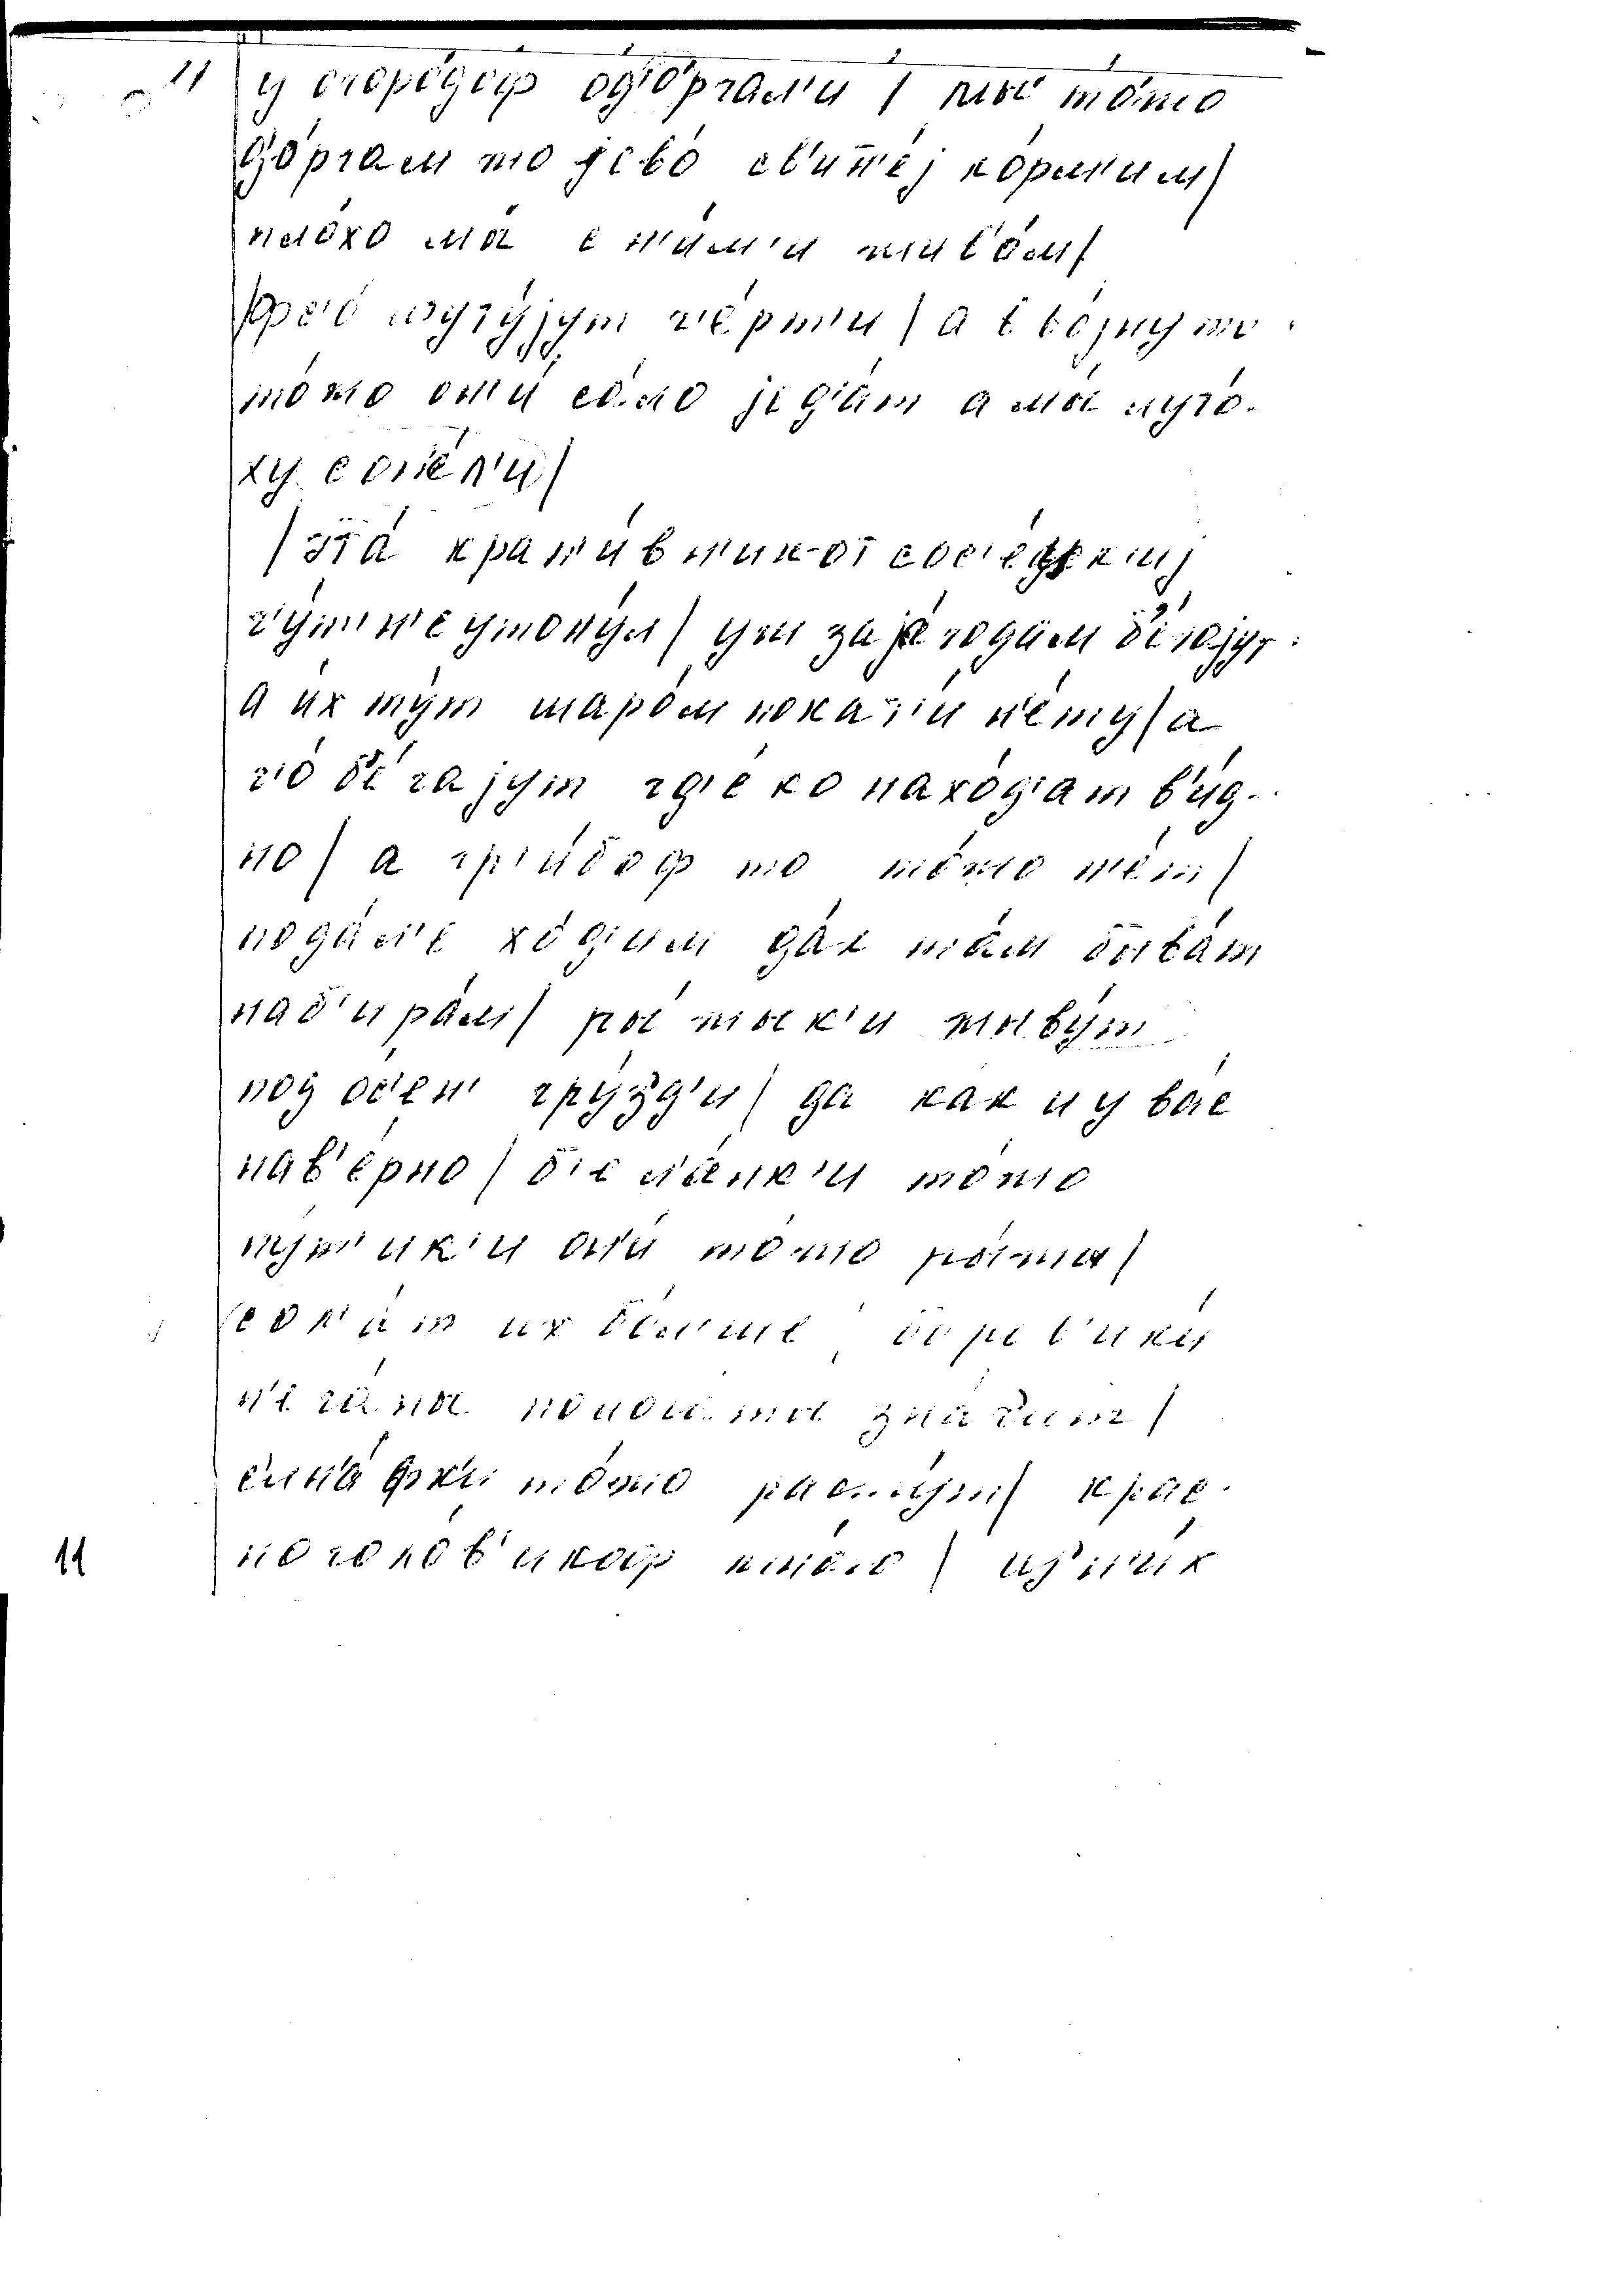 11 у огоро́доф од'о́ргал'и / мы́ то́жо
д'о́ргам то јево́ св'ин'е́ј ко́рм'им/
пло́хо мы́ с н'и́м'и жыв'о́м/
/фс'о́ шугу́јут ч'е́рт'и / а в во́јну то
то́жо он'и́ са́ло јед'а́т а мы́ муч'о́-
ху с
/та́ крап'и́вн'ик-от сос'е́дск'иј
ч'у́т' н'е утону́л / уш за ја́годам б'е́гајут
а и́х ту́т шаро́м покат'и́ н'е́ту/ а
ч'о́ б'е́гајут гд'е́-ко нахо́д'ат в'и́д-
но / а гр'ибо́ф то то́жо н'е́т/
пода́л'е хо́д'им да́к та́м быва́т
наб'ира́м/ ры́жык'и жыву́т
под о́с'ен' гру́зд'и / да как и у ва́с
нав'е́рно / б'ел'а́нк'и то́жо
пу́т'ик'и он'и́ то́жо ры́жы/
сол'а́т их бо́л'ше боров'ики́
н'е зна́чит/
с'ин'а́фки то́жо расту́т/ крас-
ноголо́в'икоф мно́го / из н'и́х
11